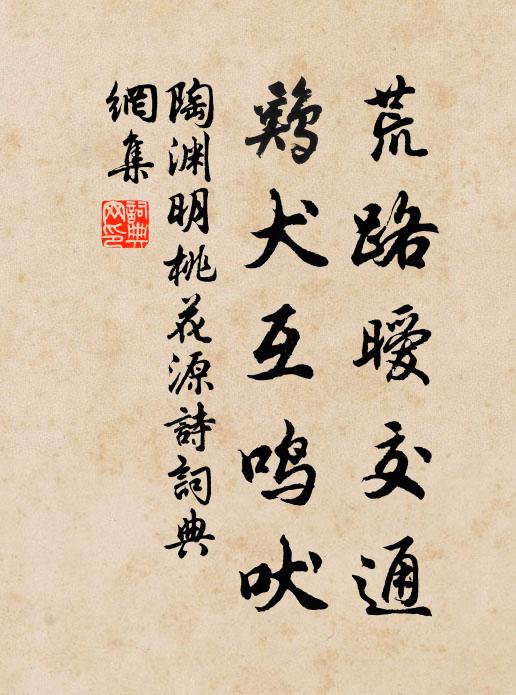 荒路曖交通
鷄犬互鳴吠
陶渊明桃花源詩詞典
網集
詞典
网印